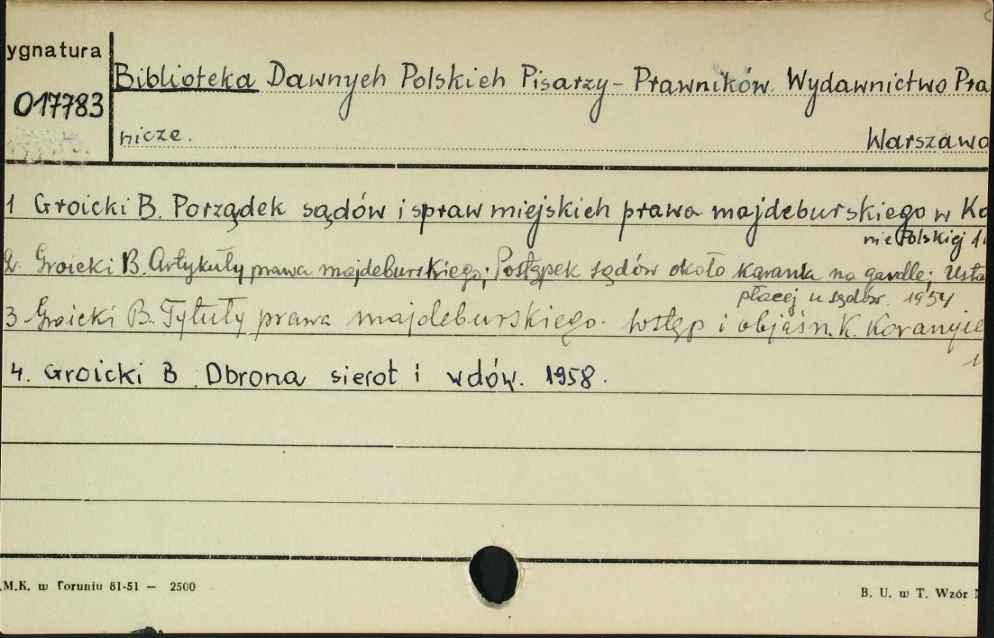 ygnatura
017783
Biblioteka Dawnych Polskich Pisarzy - Prawników. Wydawnictwo Pra
nicze.
Warszawa
1 Groicki B. Porządek sądów i spraw miejskich prawa majdeburskiego w Ko
nie Polskiej 1
2. Groicki B. Artykuły prawa majdeburskiego; Postępek sądów około karania na gardle; Usta
płacej u sądów. 1954
3 Groicki B. Tytuły prawa majdeburskiego. Wstęp i objaśn. K. Koranyie
1
4. Groicki B. Obrona sierot i wdów. 1958.
M.K. w Toruniu 81-51 — 2500
B. U. w T. Wzór